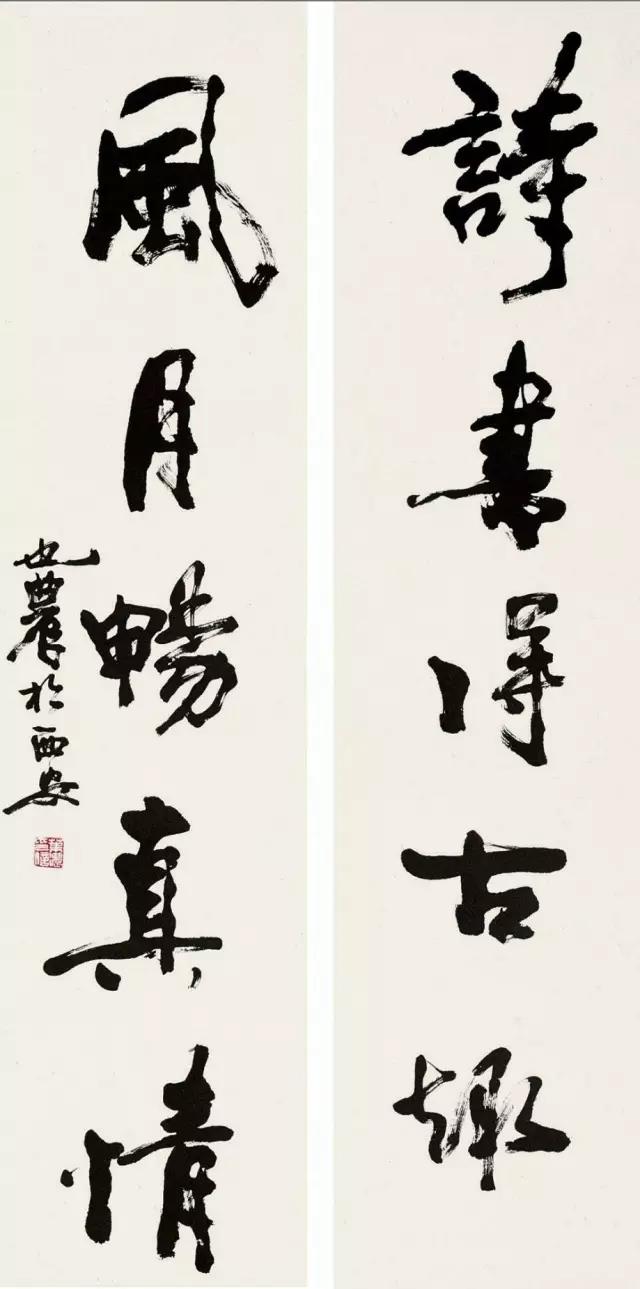 詩書得古趣
風月暢真情
也農於西安